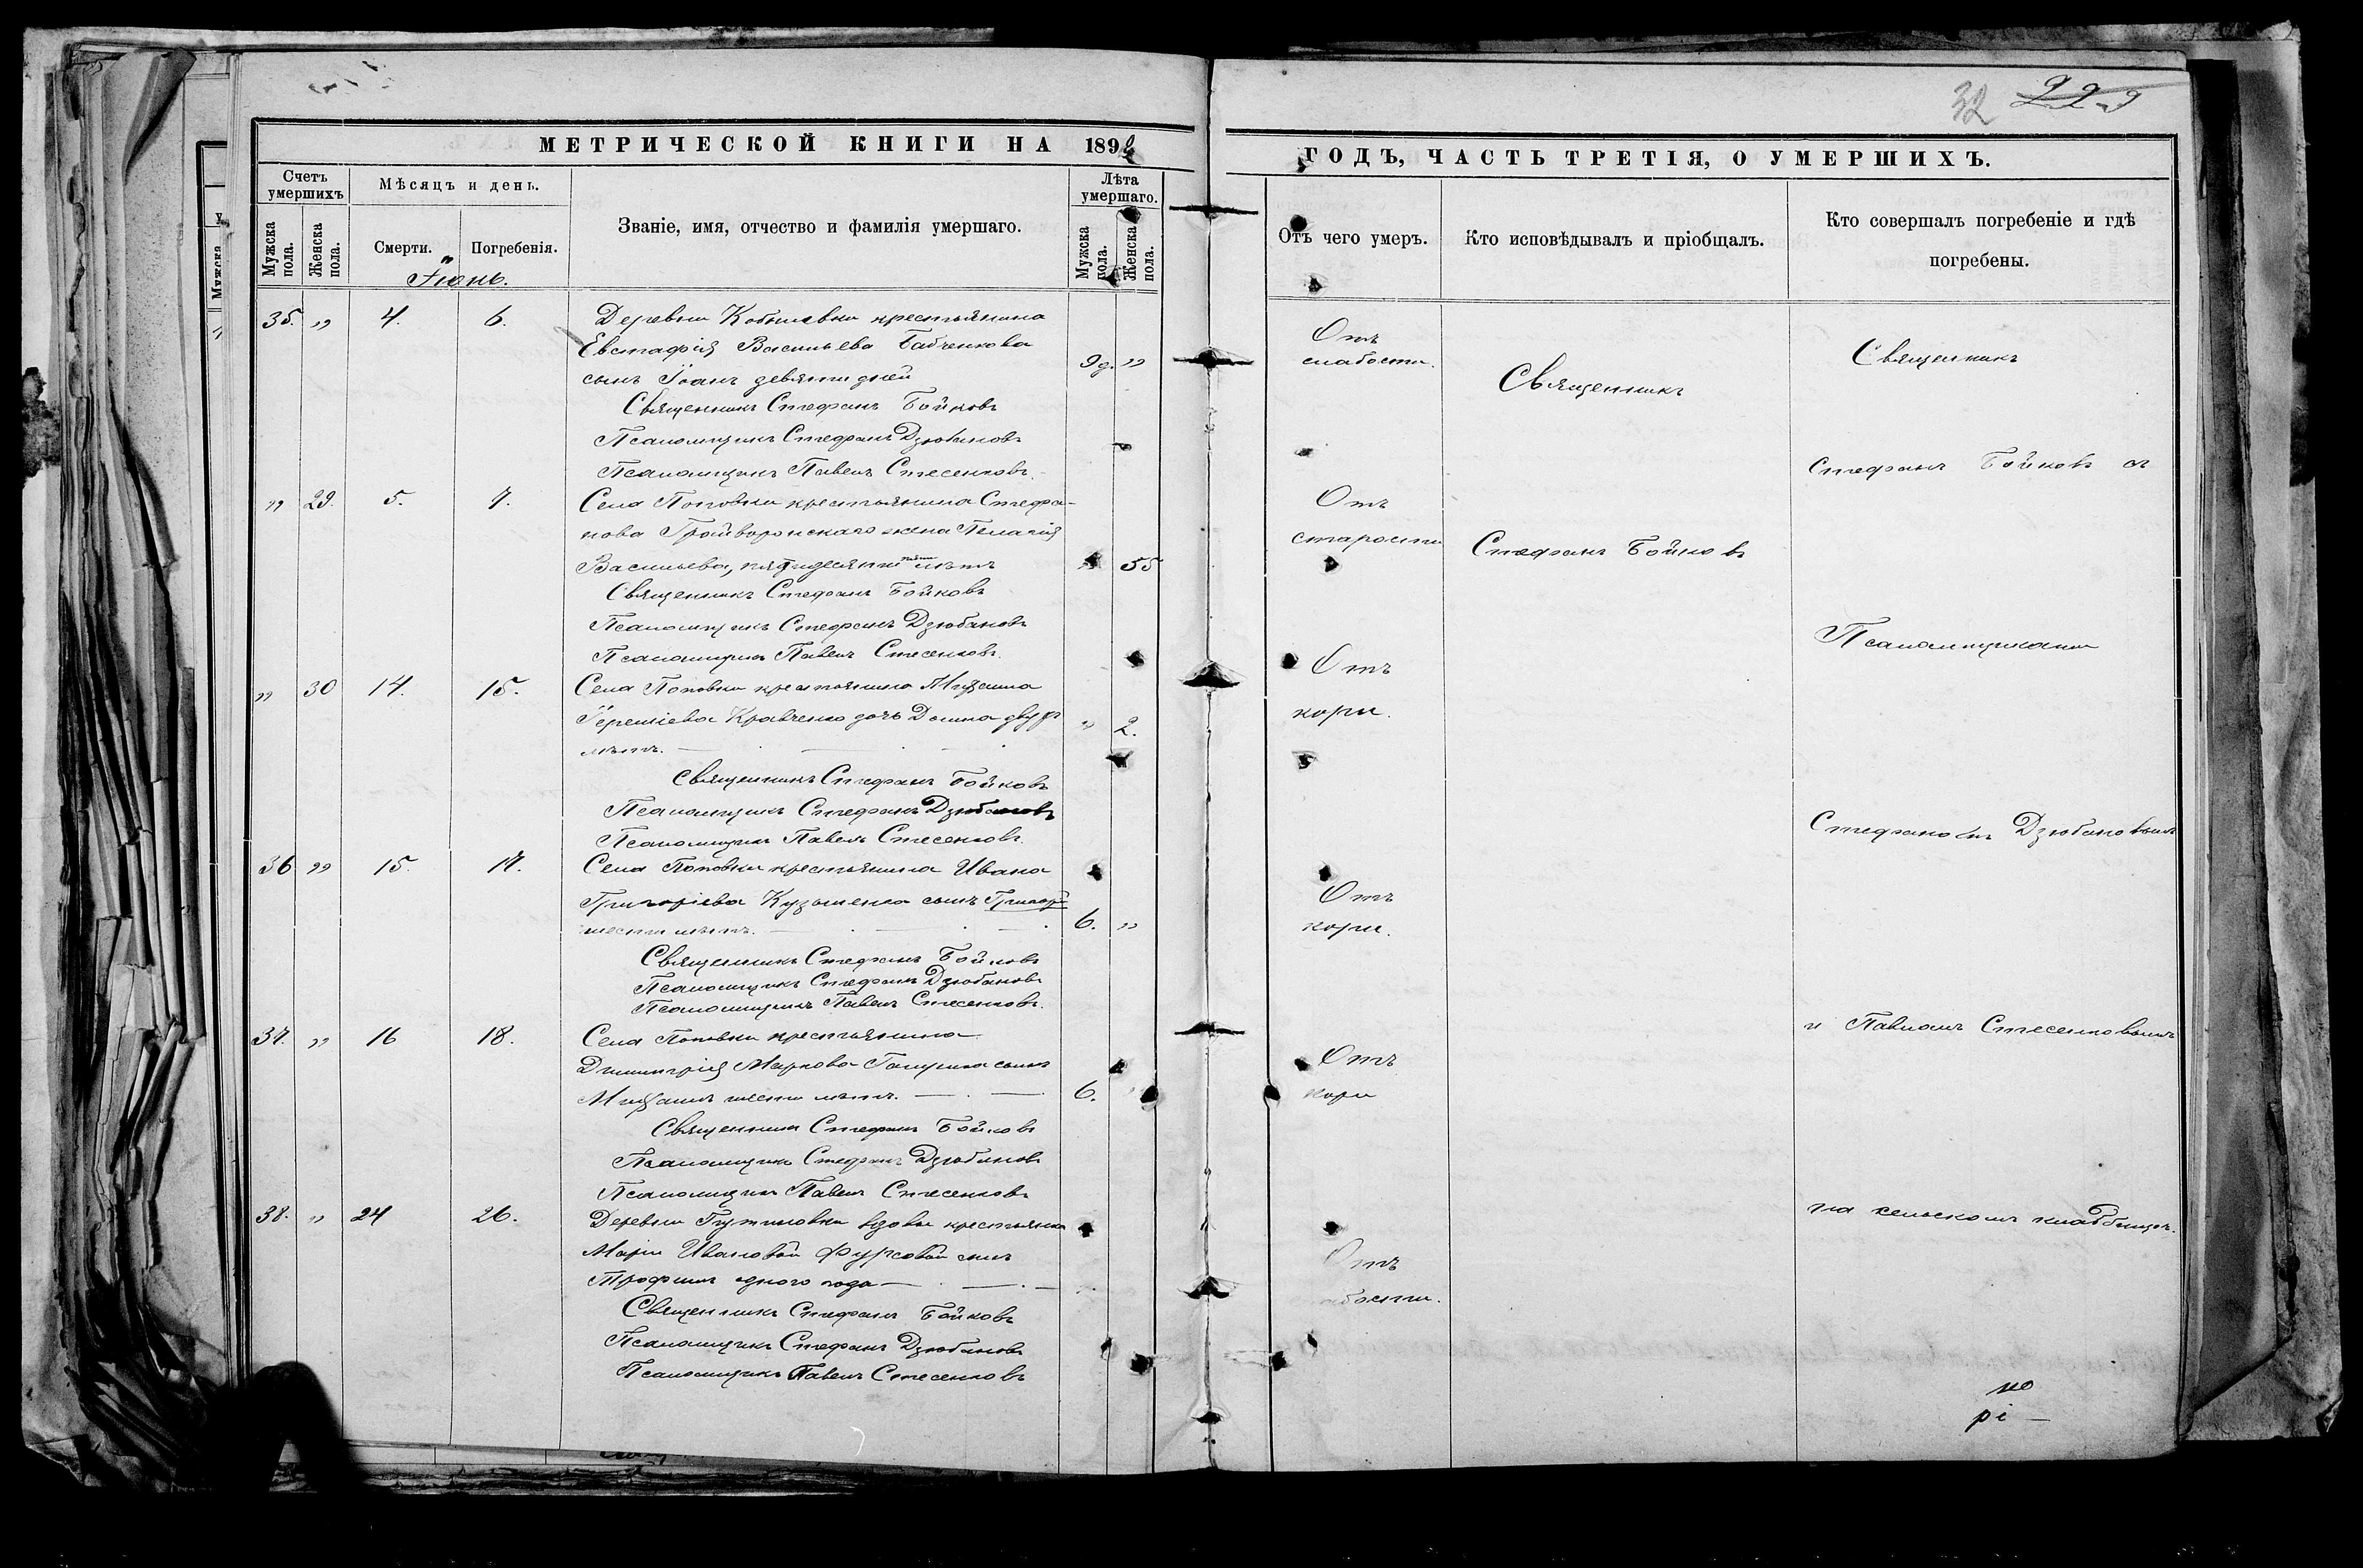 32 229
МЕТРИЧЕСКОЙ КНИГИ НА 1892
ГОДЪ, ЧАСТЬ ТРЕТІЯ, О УМЕРШИХЪ.
Счетъ умершихъ
Мужска пола.
Женска пола.
Мѣсяцъ и день.
Смерти.
Погребенія.
Званіе, имя, отчество и фамилія умершаго.
Лѣта умершаго.
Мужска пола.
Женска пола.
Отъ чего умеръ.
Кто исповѣдывалъ и пріобщалъ.
Кто совершалъ погребеніе и гдѣ
погребены.
Іюнь.
35. „ 4. 6. Деревни крестьянина
Евстафія Васильева Бабченкова
сынъ Іоанъ девяти дней 9 д. „
Священникъ Стефанъ Бойковъ
Псаломщикъ Стефанъ Дзюбановъ
Псаломщикъ Павелъ Стесенковъ.
Отъ
слабости.
„ 29. 5. 7. Села Поповки крестьянина Стефа-
нова Грайворонскаго жена Пелагія
Васильева, пятидесяти пяти лѣтъ „ 55
Священникъ Стефанъ Бойковъ
Псаломщикъ Стефанъ Дзюбановъ
Псаломщикъ Павелъ Стесенковъ.
Отъ
старости
„ 30 14. 15. Села Поповки крестьянина Михаила
Іереміева Кравченко дочь Домна двухъ „ 2.
лѣтъ.
Священникъ Стефанъ Бойковъ
Псаломщикъ Стефанъ Дзюбановъ
Псаломщикъ Павелъ Стесенковъ.
Отъ
кори.
36 „ 15. 17. Села Поповки крестьянина Ивана
Григоріева Кузьменка сынъ Григорій
шести лѣтъ. 6. „
Священникъ Стефанъ Бойковъ
Псаломщикъ Стефанъ Дзюбановъ
Псаломщикъ Павелъ Стесенковъ.
Отъ
кори.
37. „ 16 18. Села Поповки крестьянина
Димитрія Маркова сынъ
Михаилъ шести лѣтъ. 6.
Священникъ Стефанъ Бойковъ
Псаломщикъ Стефанъ Дзюбановъ
Псаломщикъ Павелъ Стесенковъ
Отъ
кори
38. „ 24 26. Деревни вдовы крестьянки
Маріи Ивановой Фурсовой сынъ
Трофимъ одного года
Священникъ Стефанъ Бойковъ
Псаломщикъ Стефанъ Дзюбановъ
Псаломщикъ Павелъ Стесенковъ
Отъ
Священникъ
Стефанъ Бойковъ
Священникъ
Стефанъ Бойковъ съ
Псаломщиками
Стефаномъ Дзюбановымъ
и Павломъ Стесенковымъ
на сельскомъ кладбищѣ.
но
рі –